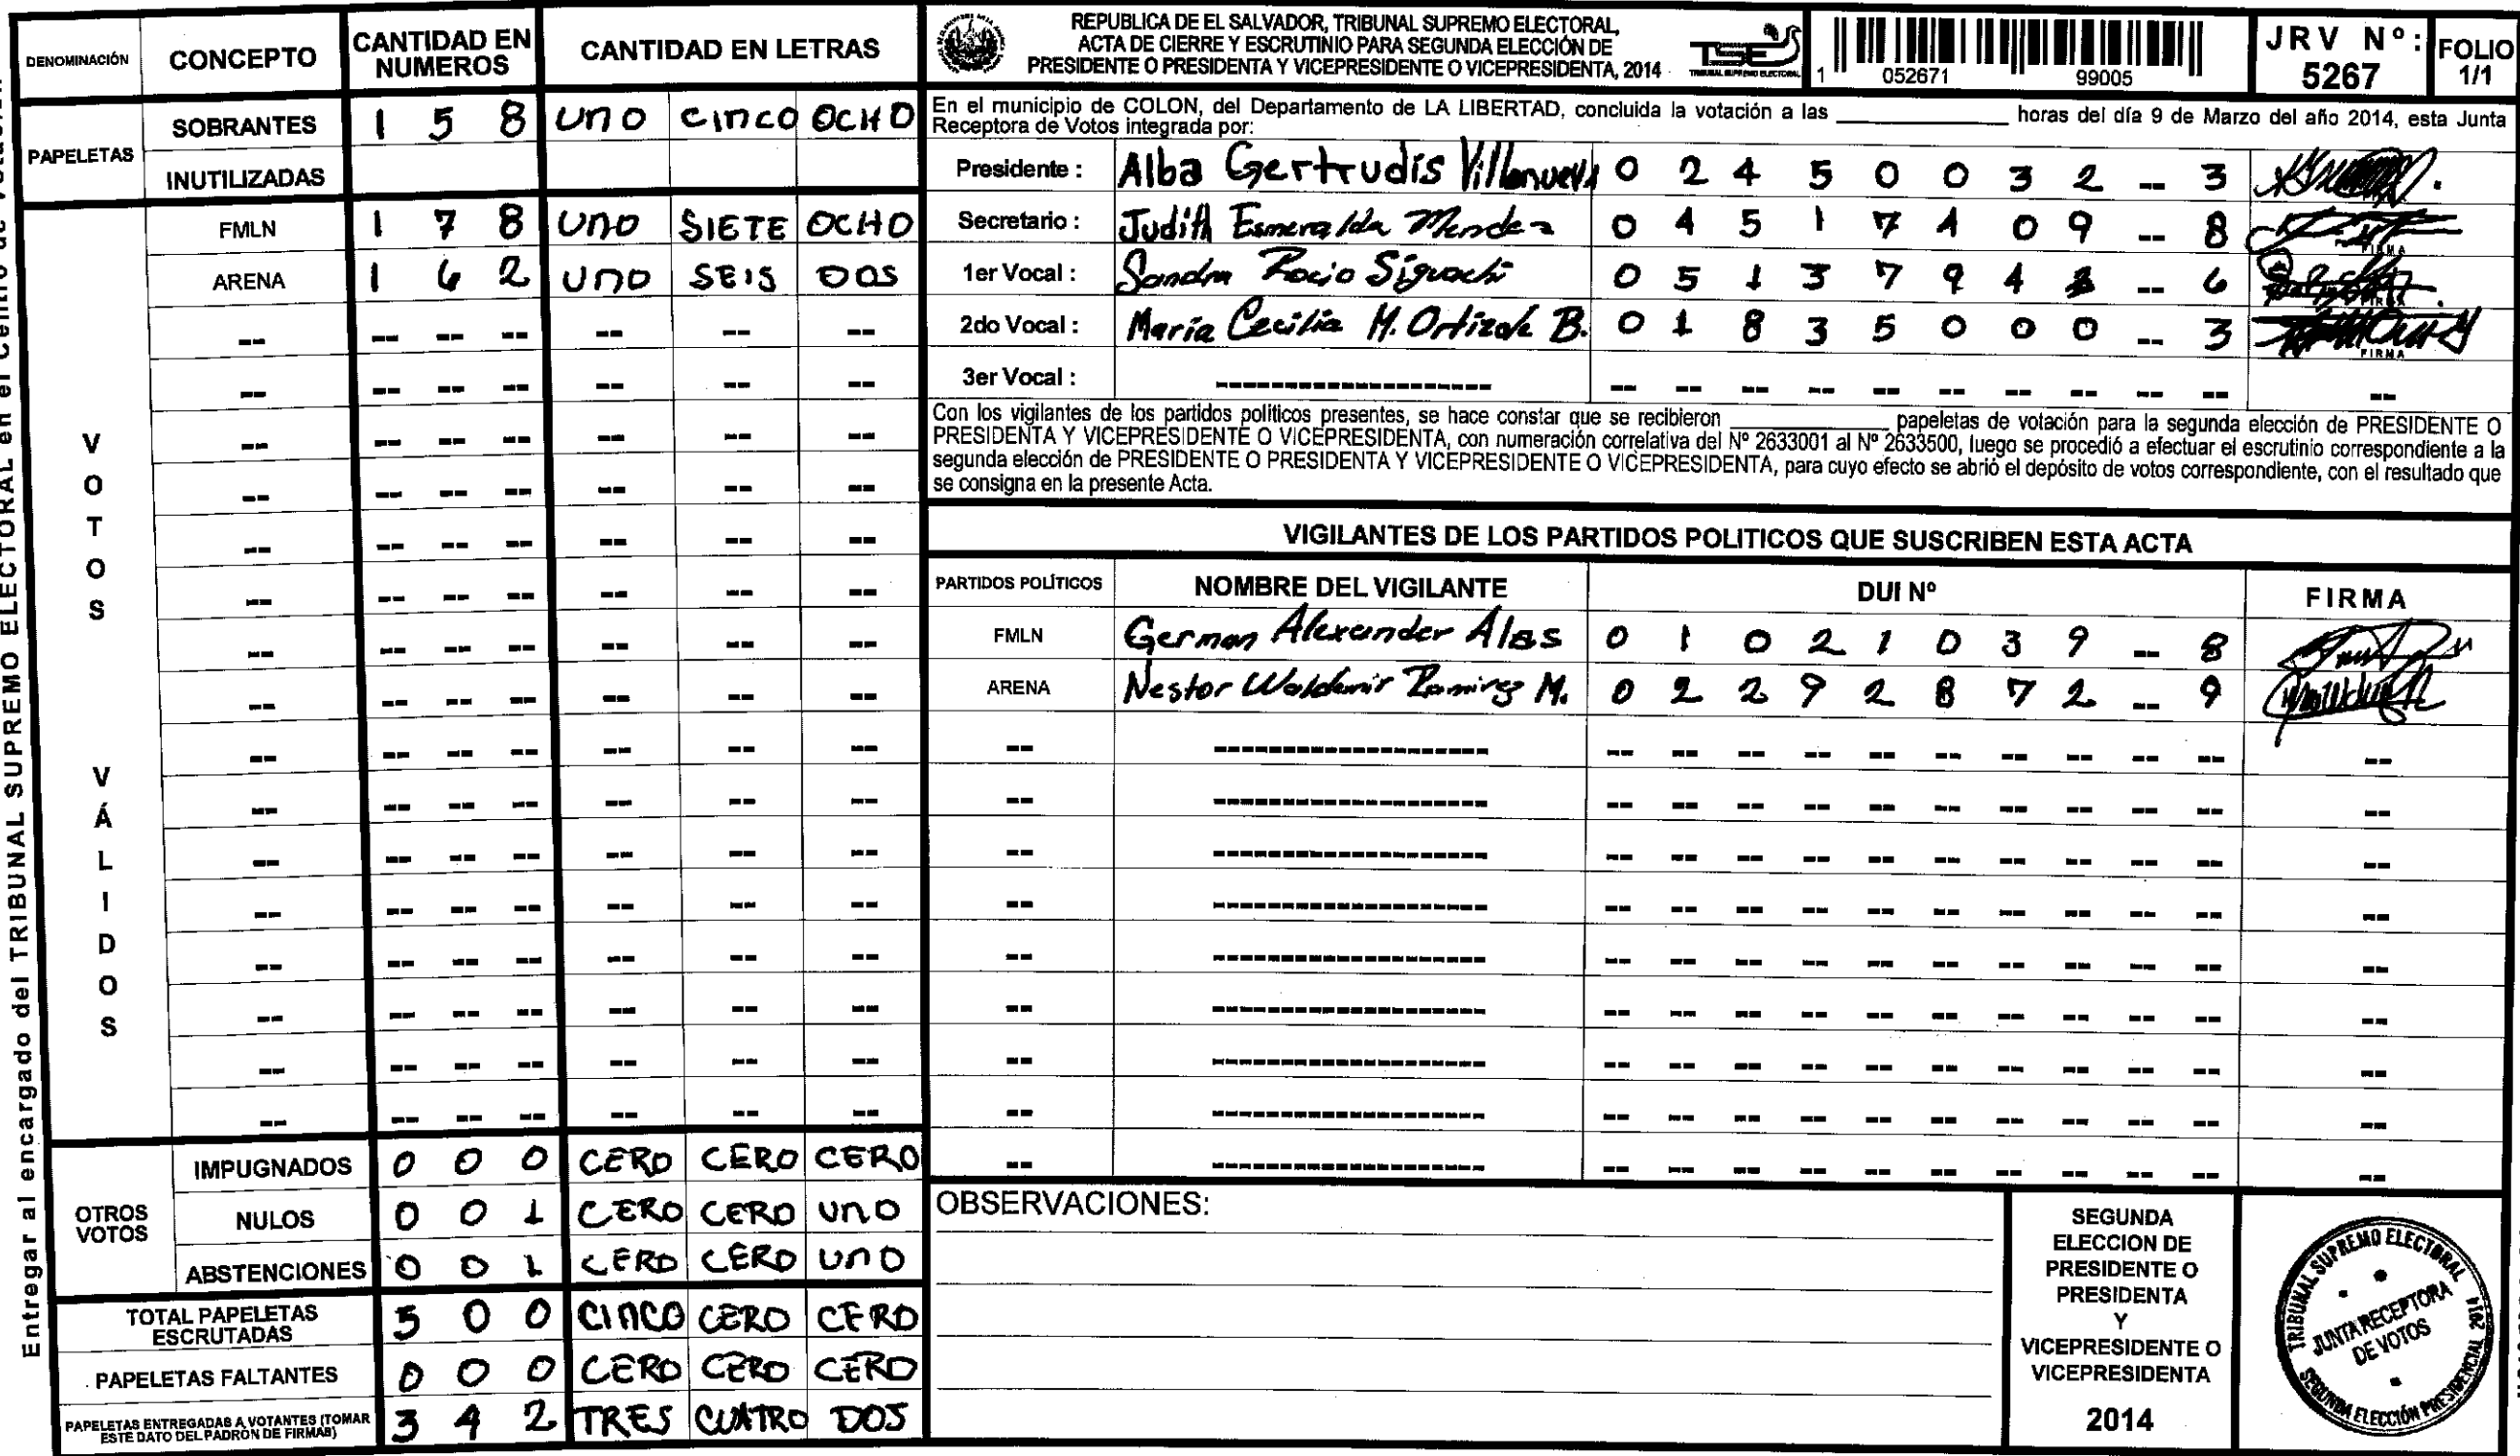 Entregar al encargado del TRIBUNAL SUPREMO ELECTORAL en el Centro de
DENOMINACIÓN CONCEPTO CANTIDAD EN NUMEROS CANTIDAD EN LETRAS
PAPELETAS
SOBRANTES 1 5 8 UNO CINCO OCHO
INUTILIZADAS
VOTOS VÁLIDOS
FMLN 1 7 8 UNO SIETE OCHO
ARENA 1 6 2 UNO SEIS DOS
OTROS VOTOS
IMPUGNADOS 0 0 0 CERO CERO CERO
NULOS 0 0 1 CERO CERO UNO
ABSTENCIONES 0 0 1 CERO CERO UNO
TOTAL PAPELETAS ESCRUTADAS 5 0 0 CINCO CERO CERO
PAPELETAS FALTANTES 0 0 0 CERO CERO CERO
PAPELETAS ENTREGADAS A VOTANTES (TOMAR ESTE DATO DEL PADRÓN DE FIRMAS) 3 4 2 TRES CUATRO DOS
REPUBLICA DE EL SALVADOR, TRIBUNAL SUPREMO ELECTORAL,
ACTA DE CIERRE Y ESCRUTINIO PARA SEGUNDA ELECCIÓN DE
PRESIDENTE O PRESIDENTA Y VICEPRESIDENTE O VICEPRESIDENTA, 2014
TSE
TRIBUNAL SUPREMO ELECTORAL
1 052671 99005
JRV Nº: 5267
FOLIO 1/1
En el municipio de COLON, del Departamento de LA LIBERTAD, concluida la votación a las ____ horas del día 9 de Marzo del año 2014, esta Junta
Receptora de Votos integrada por:
Presidente : Alba Gertrudis Villanueva 0 2 4 5 0 0 3 2 -- 3
Secretario : Judith Esmeralda Mendez 0 4 5 1 7 4 0 9 -- 8 FIRMA
1er Vocal : Sandra Rocio Siguachi 0 5 1 3 7 9 4 -- 6 FIRMA
2do Vocal : Maria Cecilia M. Ortiz de B. 0 1 8 3 5 0 0 0 -- 3 FIRMA
3er Vocal : -- -- -- -- -- -- -- -- -- -- --
Con los vigilantes de los partidos políticos presentes, se hace constar que se recibieron ____ papeletas de votación para la segunda elección de PRESIDENTE O
PRESIDENTA Y VICEPRESIDENTE O VICEPRESIDENTA, con numeración correlativa del Nº 2633001 al Nº 2633500, luego se procedió a efectuar el escrutinio correspondiente a la
segunda elección de PRESIDENTE O PRESIDENTA Y VICEPRESIDENTE O VICEPRESIDENTA, para cuyo efecto se abrió el depósito de votos correspondiente, con el resultado que
se consigna en la presente Acta.
VIGILANTES DE LOS PARTIDOS POLITICOS QUE SUSCRIBEN ESTA ACTA
PARTIDOS POLÍTICOS NOMBRE DEL VIGILANTE DUI Nº FIRMA
FMLN German Alexander Alas 0 1 0 2 1 0 3 9 -- 8
ARENA Nestor Waldemir Ramirez M. 0 2 2 9 2 8 7 2 -- 9
OBSERVACIONES:
SEGUNDA
ELECCION DE
PRESIDENTE O
PRESIDENTA
Y
VICEPRESIDENTE O
VICEPRESIDENTA
2014
TRIBUNAL SUPREMO ELECTORAL 2014
JUNTA RECEPTORA
DE VOTOS
SEGUNDA ELECCIÓN PRESIDENCIAL